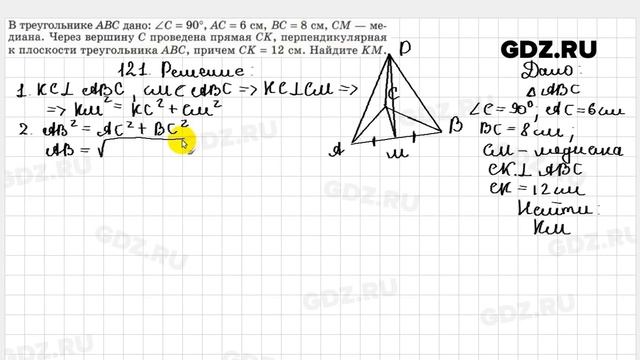 В треугольнике ABC дано: ∠C = 90°, AC = 6 см, BC = 8 см, CM — ме-
диана. Через вершину C проведена прямая CK, перпендикулярная
к плоскости треугольника ABC, причем CK = 12 см. Найдите KM.
GDZ.RU
121. Решение:
1. KC⊥ ABC, CM ∈ ABC => KC⊥CM =>
=> KM² = KC² + CM²
2. AB² = AC² + BC²
AB = √
D
C
A
M
B
Дано:
△ ABC
∠C = 90°, AC = 6 см
BC = 8 см;
CM - медиана
CK ⊥ ABC
CK = 12 см
Найти:
KM
GDZ.RU
GDZ.RU
GDZ.RU
GDZ.RU